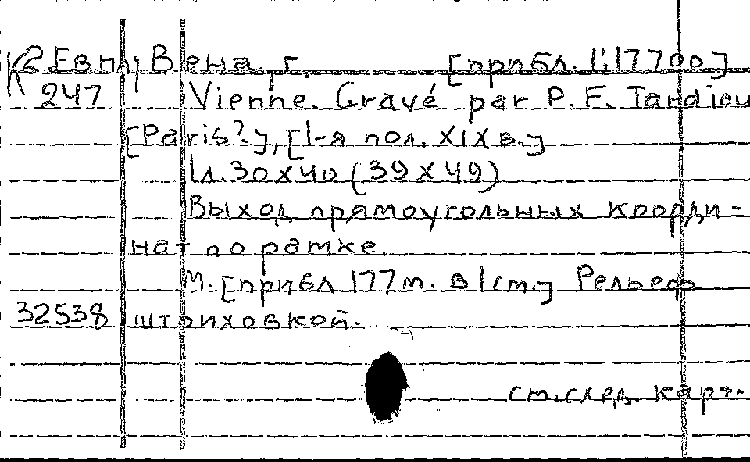 К2 Евп/ Вена. г. [прибл. 1:17700]
247 Vienne. Gravé par P. F. Tardieu
[Paris?], [1-я пол. XIX в.]
1л. 30х40 (39х49)
Выход прямоугольных коорди-
нат по рамке
М. [прибл 177м. в 1см.] Рельеф
32538 штриховкой.
см. след. карт.